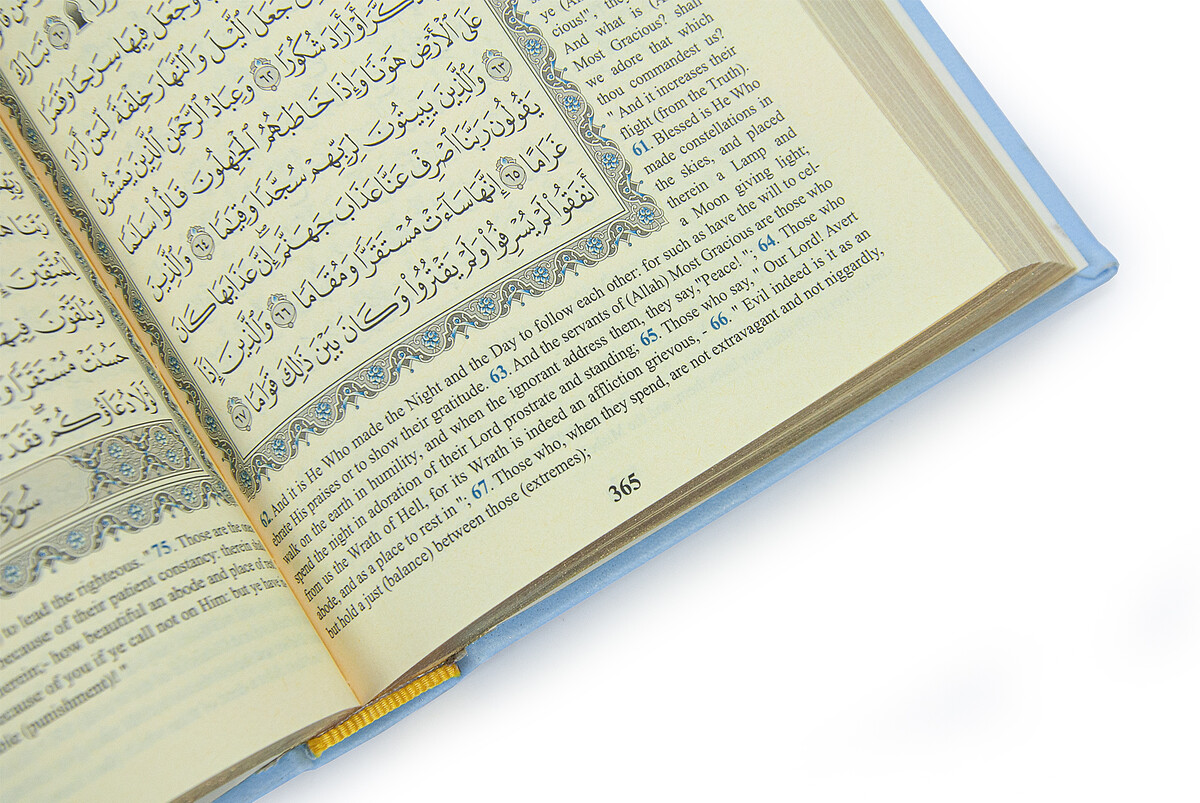 تَبَارَكَ
وَجَعَلَ فِيهَا سِرَاجًا وَقَمَرًا
جَعَلَ ٱلَّيْلَ وَٱلنَّهَارَ خِلْفَةً لِّمَنْ أَرَادَ
أَوْ أَرَادَ شُكُورًا ٦٢ وَعِبَادُ ٱلرَّحْمَٰنِ ٱلَّذِينَ يَمْشُونَ
عَلَى ٱلْأَرْضِ هَوْنًا وَإِذَا خَاطَبَهُمُ ٱلْجَٰهِلُونَ قَالُوا۟ سَلَٰمًا
٦٣ وَٱلَّذِينَ يَبِيتُونَ لِرَبِّهِمْ سُجَّدًا وَقِيَٰمًا ٦٤ وَٱلَّذِينَ
يَقُولُونَ رَبَّنَا ٱصْرِفْ عَنَّا عَذَابَ جَهَنَّمَ إِنَّ عَذَابَهَا كَانَ
غَرَامًا ٦٥ إِنَّهَا سَآءَتْ مُسْتَقَرًّا وَمُقَامًا ٦٦ وَٱلَّذِينَ إِذَآ
أَنفَقُوا۟ لَمْ يُسْرِفُوا۟ وَلَمْ يَقْتُرُوا۟ وَكَانَ بَيْنَ ذَٰلِكَ قَوَامًا ٦٧
cious!", they
And what is (A
Most Gracious? shall
we adore that which
thou commandest us?
" And it increases their
flight (from the Truth).
61. Blessed is He Who
made constellations in
the skies, and placed
therein a Lamp and
a Moon giving light;
62. And it is He Who made the Night and the Day to follow each other: for such as have the will to cel-
ebrate His praises or to show their gratitude. 63. And the servants of (Allah) Most Gracious are those who
walk on the earth in humility, and when the ignorant address them, they say,"Peace! "; 64. Those who
spend the night in adoration of their Lord prostrate and standing; 65. Those who say, " Our Lord! Avert
from us the Wrath of Hell, for its Wrath is indeed an affliction grievous, - 66. " Evil indeed is it as an
abode, and as a place to rest in "; 67. Those who, when they spend, are not extravagant and not niggardly,
but hold a just (balance) between those (extremes);
365
حَسُنَتْ مُسْتَقَرًّا
لَوْلَا دُعَآؤُكُمْ فَقَدْ
سُورَةُ
to lead the righteous. " 75. Those are the
because of their patient constancy: therein
therein;- how beautiful an abode and place of
because of you if ye call not on Him: but ye have
(punishment)! "